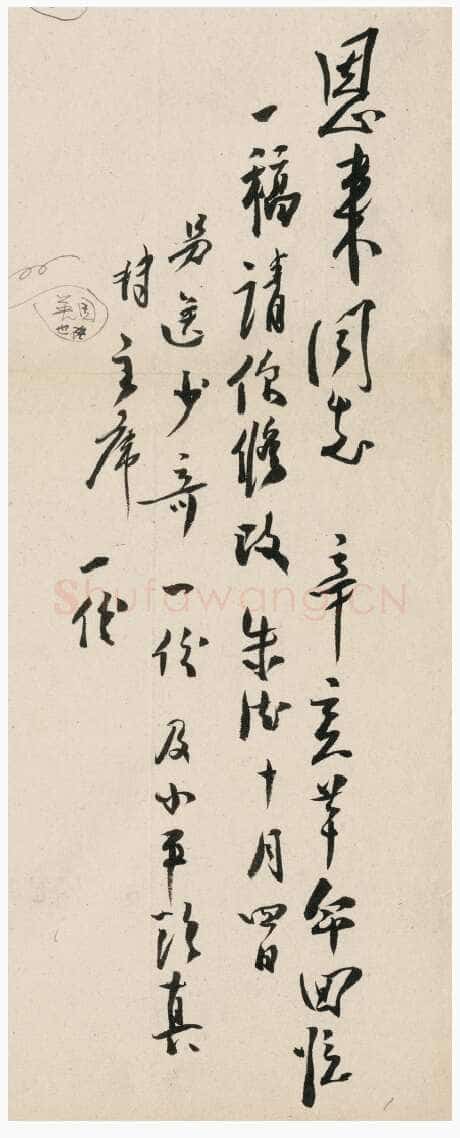 恩来同志 辛亥革命回忆
一稿请你修改 朱德十月四日
另送少奇一份及小平 陈真
主席一份
Shufawang.CN